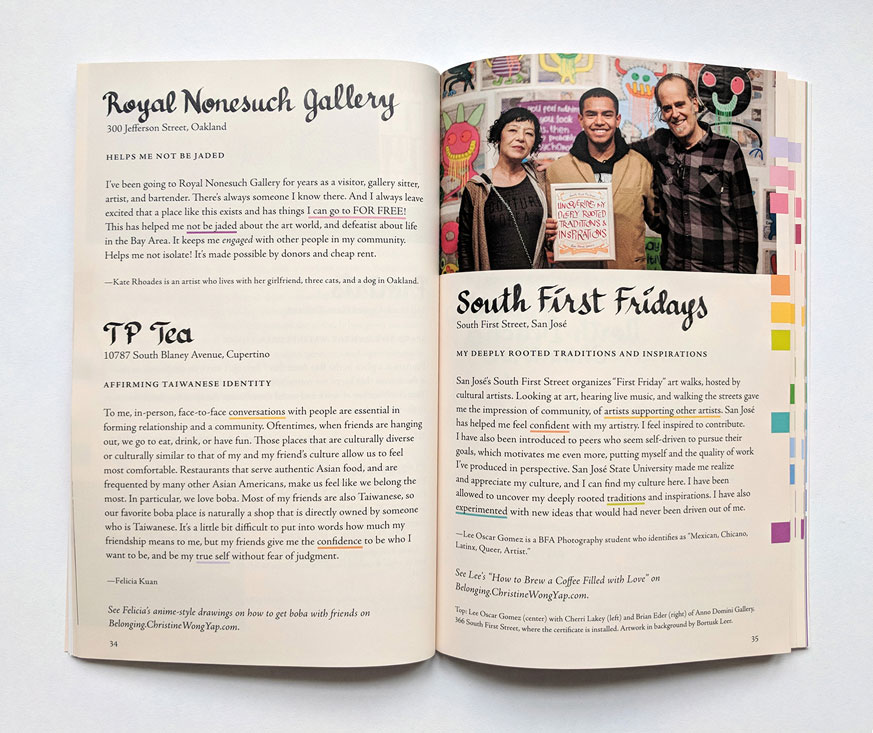 Royal Nonesuch Gallery
300 Jefferson Street, Oakland
HELPS ME NOT BE JADED
I've been going to Royal Nonesuch Gallery for years as a visitor, gallery sitter,
artist, and bartender. There's always someone I know there. And I always leave
excited that a place like this exists and has things I can go to FOR FREE!
This has helped me not be jaded about the art world, and defeatist about life
in the Bay Area. It keeps me engaged with other people in my community.
Helps me not isolate! It's made possible by donors and cheap rent.
—Kate Rhoades is an artist who lives with her girlfriend, three cats, and a dog in Oakland.
TP Tea
10787 South Blaney Avenue, Cupertino
AFFIRMING TAIWANESE IDENTITY
To me, in-person, face-to-face conversations with people are essential in
forming relationship and a community. Oftentimes, when friends are hanging
out, we go to eat, drink, or have fun. Those places that are culturally diverse
or culturally similar to that of my and my friend's culture allow us to feel
most comfortable. Restaurants that serve authentic Asian food, and are
frequented by many other Asian Americans, make us feel like we belong the
most. In particular, we love boba. Most of my friends are also Taiwanese, so
our favorite boba place is naturally a shop that is directly owned by someone
who is Taiwanese. It's a little bit difficult to put into words how much my
friendship means to me, but my friends give me the confidence to be who I
want to be, and be my true self without fear of judgment.
—Felicia Kuan
See Felicia's anime-style drawings on how to get boba with friends on
Belonging.ChristineWongYap.com.
34
you feel nothing
you look
then
probably
psycho
UNCOVERING MY
DEEPLY ROOTED
TRADITIONS &
INSPIRATIONS
South First Fridays
South First Street, San José
MY DEEPLY ROOTED TRADITIONS AND INSPIRATIONS
San José's South First Street organizes "First Friday" art walks, hosted by
cultural artists. Looking at art, hearing live music, and walking the streets gave
me the impression of community, of artists supporting other artists. San José
has helped me feel confident with my artistry. I feel inspired to contribute.
I have also been introduced to peers who seem self-driven to pursue their
goals, which motivates me even more, putting myself and the quality of work
I've produced in perspective. San José State University made me realize
and appreciate my culture, and I can find my culture here. I have been
allowed to uncover my deeply rooted traditions and inspirations. I have also
experimented with new ideas that would had never been driven out of me.
—Lee Oscar Gomez is a BFA Photography student who identifies as "Mexican, Chicano,
Latinx, Queer, Artist."
See Lee's "How to Brew a Coffee Filled with Love" on
Belonging.ChristineWongYap.com.
Top: Lee Oscar Gomez (center) with Cherri Lakey (left) and Brian Eder (right) of Anno Domini Gallery.
366 South First Street, where the certificate is installed. Artwork in background by Bortusk Leer.
35